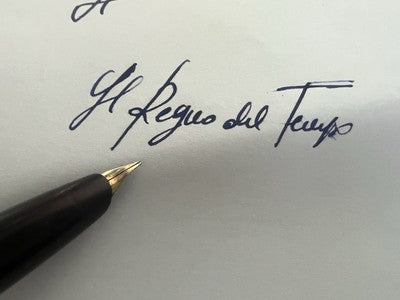 Il Regno del Tempo